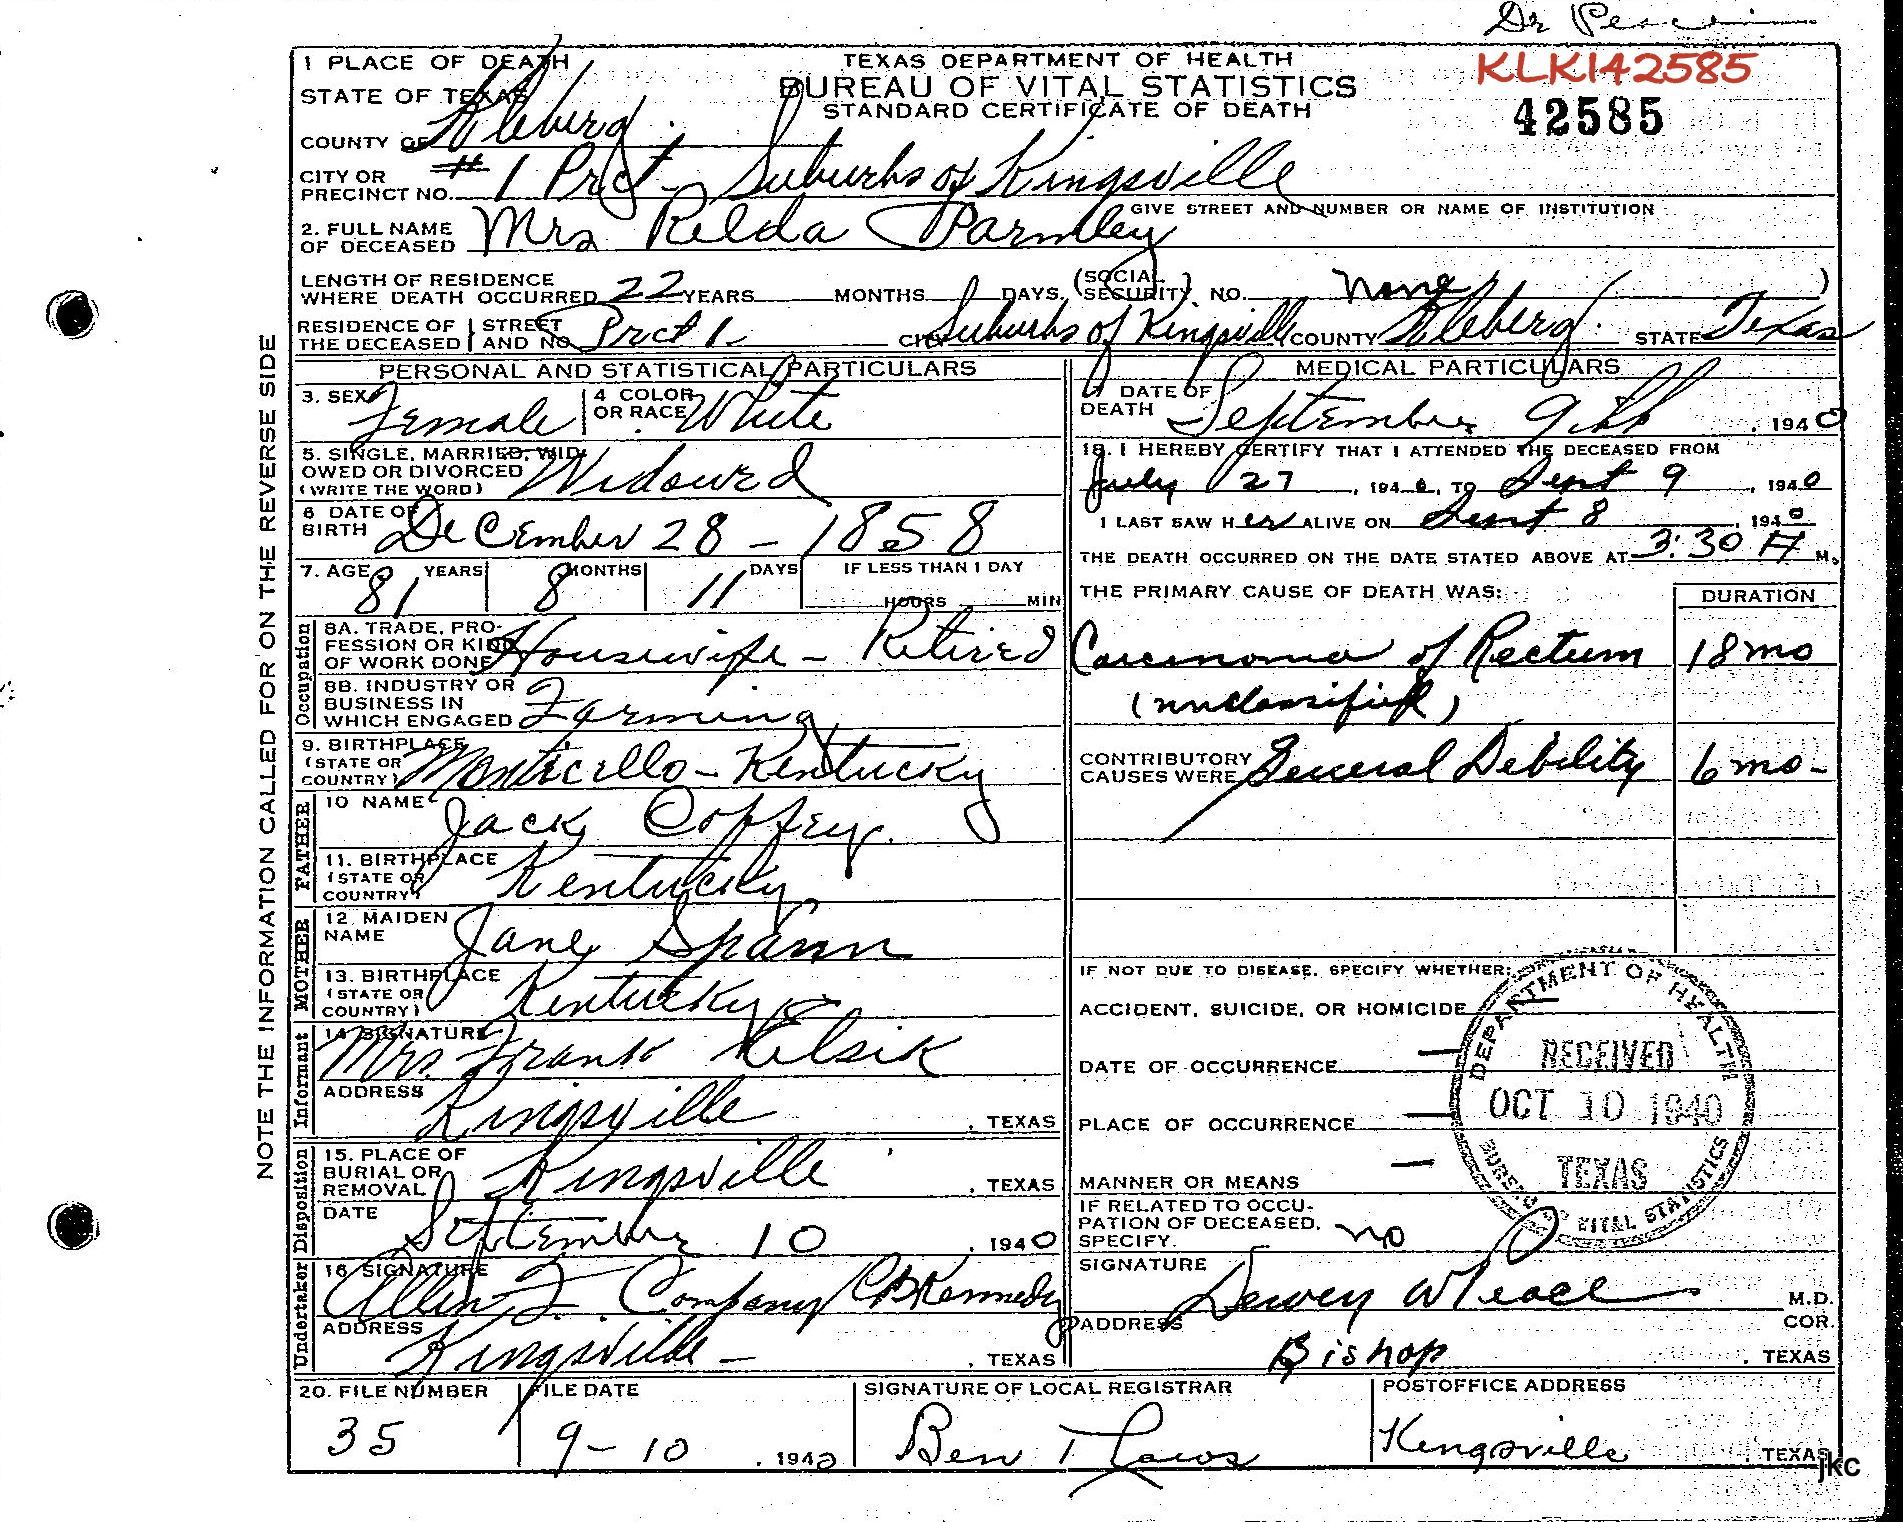 Dr Peace
1 PLACE OF DEATH
STATE OF TEXAS
COUNTY OF Kleberg
TEXAS DEPARTMENT OF HEALTH
BUREAU OF VITAL STATISTICS
STANDARD CERTIFICATE OF DEATH
KLKI42585
42585
CITY OR PRECINCT NO. #1 Prct - Suburbs of Kingsville
GIVE STREET AND NUMBER OR NAME OF INSTITUTION
2. FULL NAME OF DECEASED Mrs Relda Parmley
LENGTH OF RESIDENCE WHERE DEATH OCCURRED 22 YEARS MONTHS DAYS. (SOCIAL SECURITY NO. None )
RESIDENCE OF THE DECEASED STREET AND NO. Prct 1- CITY Suburbs of Kingsville COUNTY Kleberg. STATE Texas
NOTE THE INFORMATION CALLED FOR ON THE REVERSE SIDE
PERSONAL AND STATISTICAL PARTICULARS
3. SEX Female 4 COLOR OR RACE White
5. SINGLE, MARRIED, WIDOWED OR DIVORCED (WRITE THE WORD) Widowed
6 DATE OF BIRTH December 28 - 1858
7. AGE 81 YEARS 8 MONTHS 11 DAYS IF LESS THAN 1 DAY HOURS MIN
Occupation
8A. TRADE, PROFESSION OR KIND OF WORK DONE Housewife - Retired
8B. INDUSTRY OR BUSINESS IN WHICH ENGAGED Farming
9. BIRTHPLACE (STATE OR COUNTRY) Monticello - Kentucky
FATHER
10 NAME Jack Coffey.
11. BIRTHPLACE (STATE OR COUNTRY) Kentucky
MOTHER
12. MAIDEN NAME Jane Spann
13. BIRTHPLACE (STATE OR COUNTRY) Kentucky
Informant
14 SIGNATURE Mrs. Frank Kelsik
ADDRESS Kingsville, TEXAS
Disposition
15. PLACE OF BURIAL OR REMOVAL Kingsville, TEXAS
DATE September 10, 1940
Undertaker
16 SIGNATURE Allen F. Company CB Kennedy
ADDRESS Kingsville -, TEXAS
MEDICAL PARTICULARS
DATE OF DEATH September 9th, 1940
18. I HEREBY CERTIFY THAT I ATTENDED THE DECEASED FROM
July 27, 1940, TO Sept 9, 1940
I LAST SAW Her ALIVE ON Sept 8, 1940
THE DEATH OCCURRED ON THE DATE STATED ABOVE AT 3:30 A M.
THE PRIMARY CAUSE OF DEATH WAS: DURATION
Carcinoma of Rectum 18 mo
(unclassified)
CONTRIBUTORY CAUSES WERE General Debility 6 mo-
IF NOT DUE TO DISEASE, SPECIFY WHETHER:
ACCIDENT, SUICIDE, OR HOMICIDE —
DATE OF OCCURRENCE —
PLACE OF OCCURRENCE —
MANNER OR MEANS —
IF RELATED TO OCCUPATION OF DECEASED, SPECIFY. no
DEPARTMENT OF HEALTH
RECEIVED
OCT 10 1940
TEXAS
BUREAU OF VITAL STATISTICS
SIGNATURE Dewey W Peace M.D.
COR.
ADDRESS Bishop, TEXAS
20. FILE NUMBER 35
FILE DATE 9-10, 1940
SIGNATURE OF LOCAL REGISTRAR Ben T
POSTOFFICE ADDRESS Kingsville, TEXAS
jkc